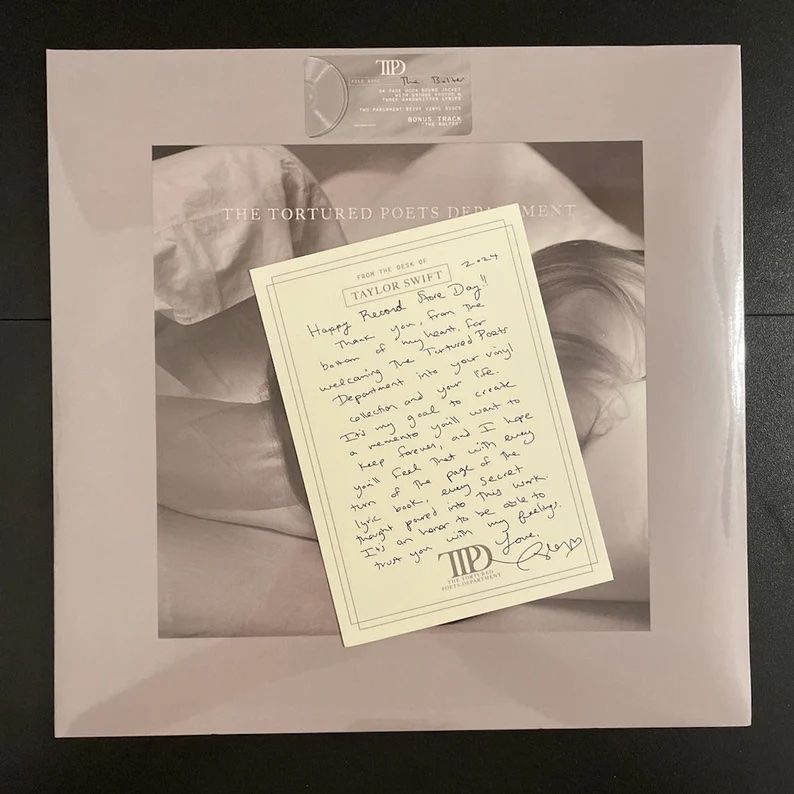 TTPD
FILE NAME The Bolter
24 PAGE BOOK BOUND JACKET
WITH UNIQUE PHOTOS &
THREE HANDWRITTEN LYRICS
TWO PARCHMENT BEIGE VINYL DISCS
BONUS TRACK
"THE BOLTER"
THE TORTURED POETS DEPARTMENT
FROM THE DESK OF
TAYLOR SWIFT
2024
Happy Record Store Day!!
Thank you, from the
bottom of my heart, for
welcoming The Tortured Poets
Department into your vinyl
collection and your life.
It's my goal to create
a memento you'll want to
keep forever, and I hope
you'll feel that with every
turn of the page of the
lyric book, every secret
thought poured into this work.
It's an honor to be able to
trust you with my feelings.
Love,
TTPD
THE TORTURED
POETS DEPARTMENT